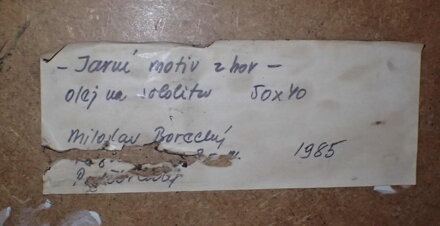 - Jarní motiv z hor -
olej na sololitu 50x40
Miloslav Borecký
1985